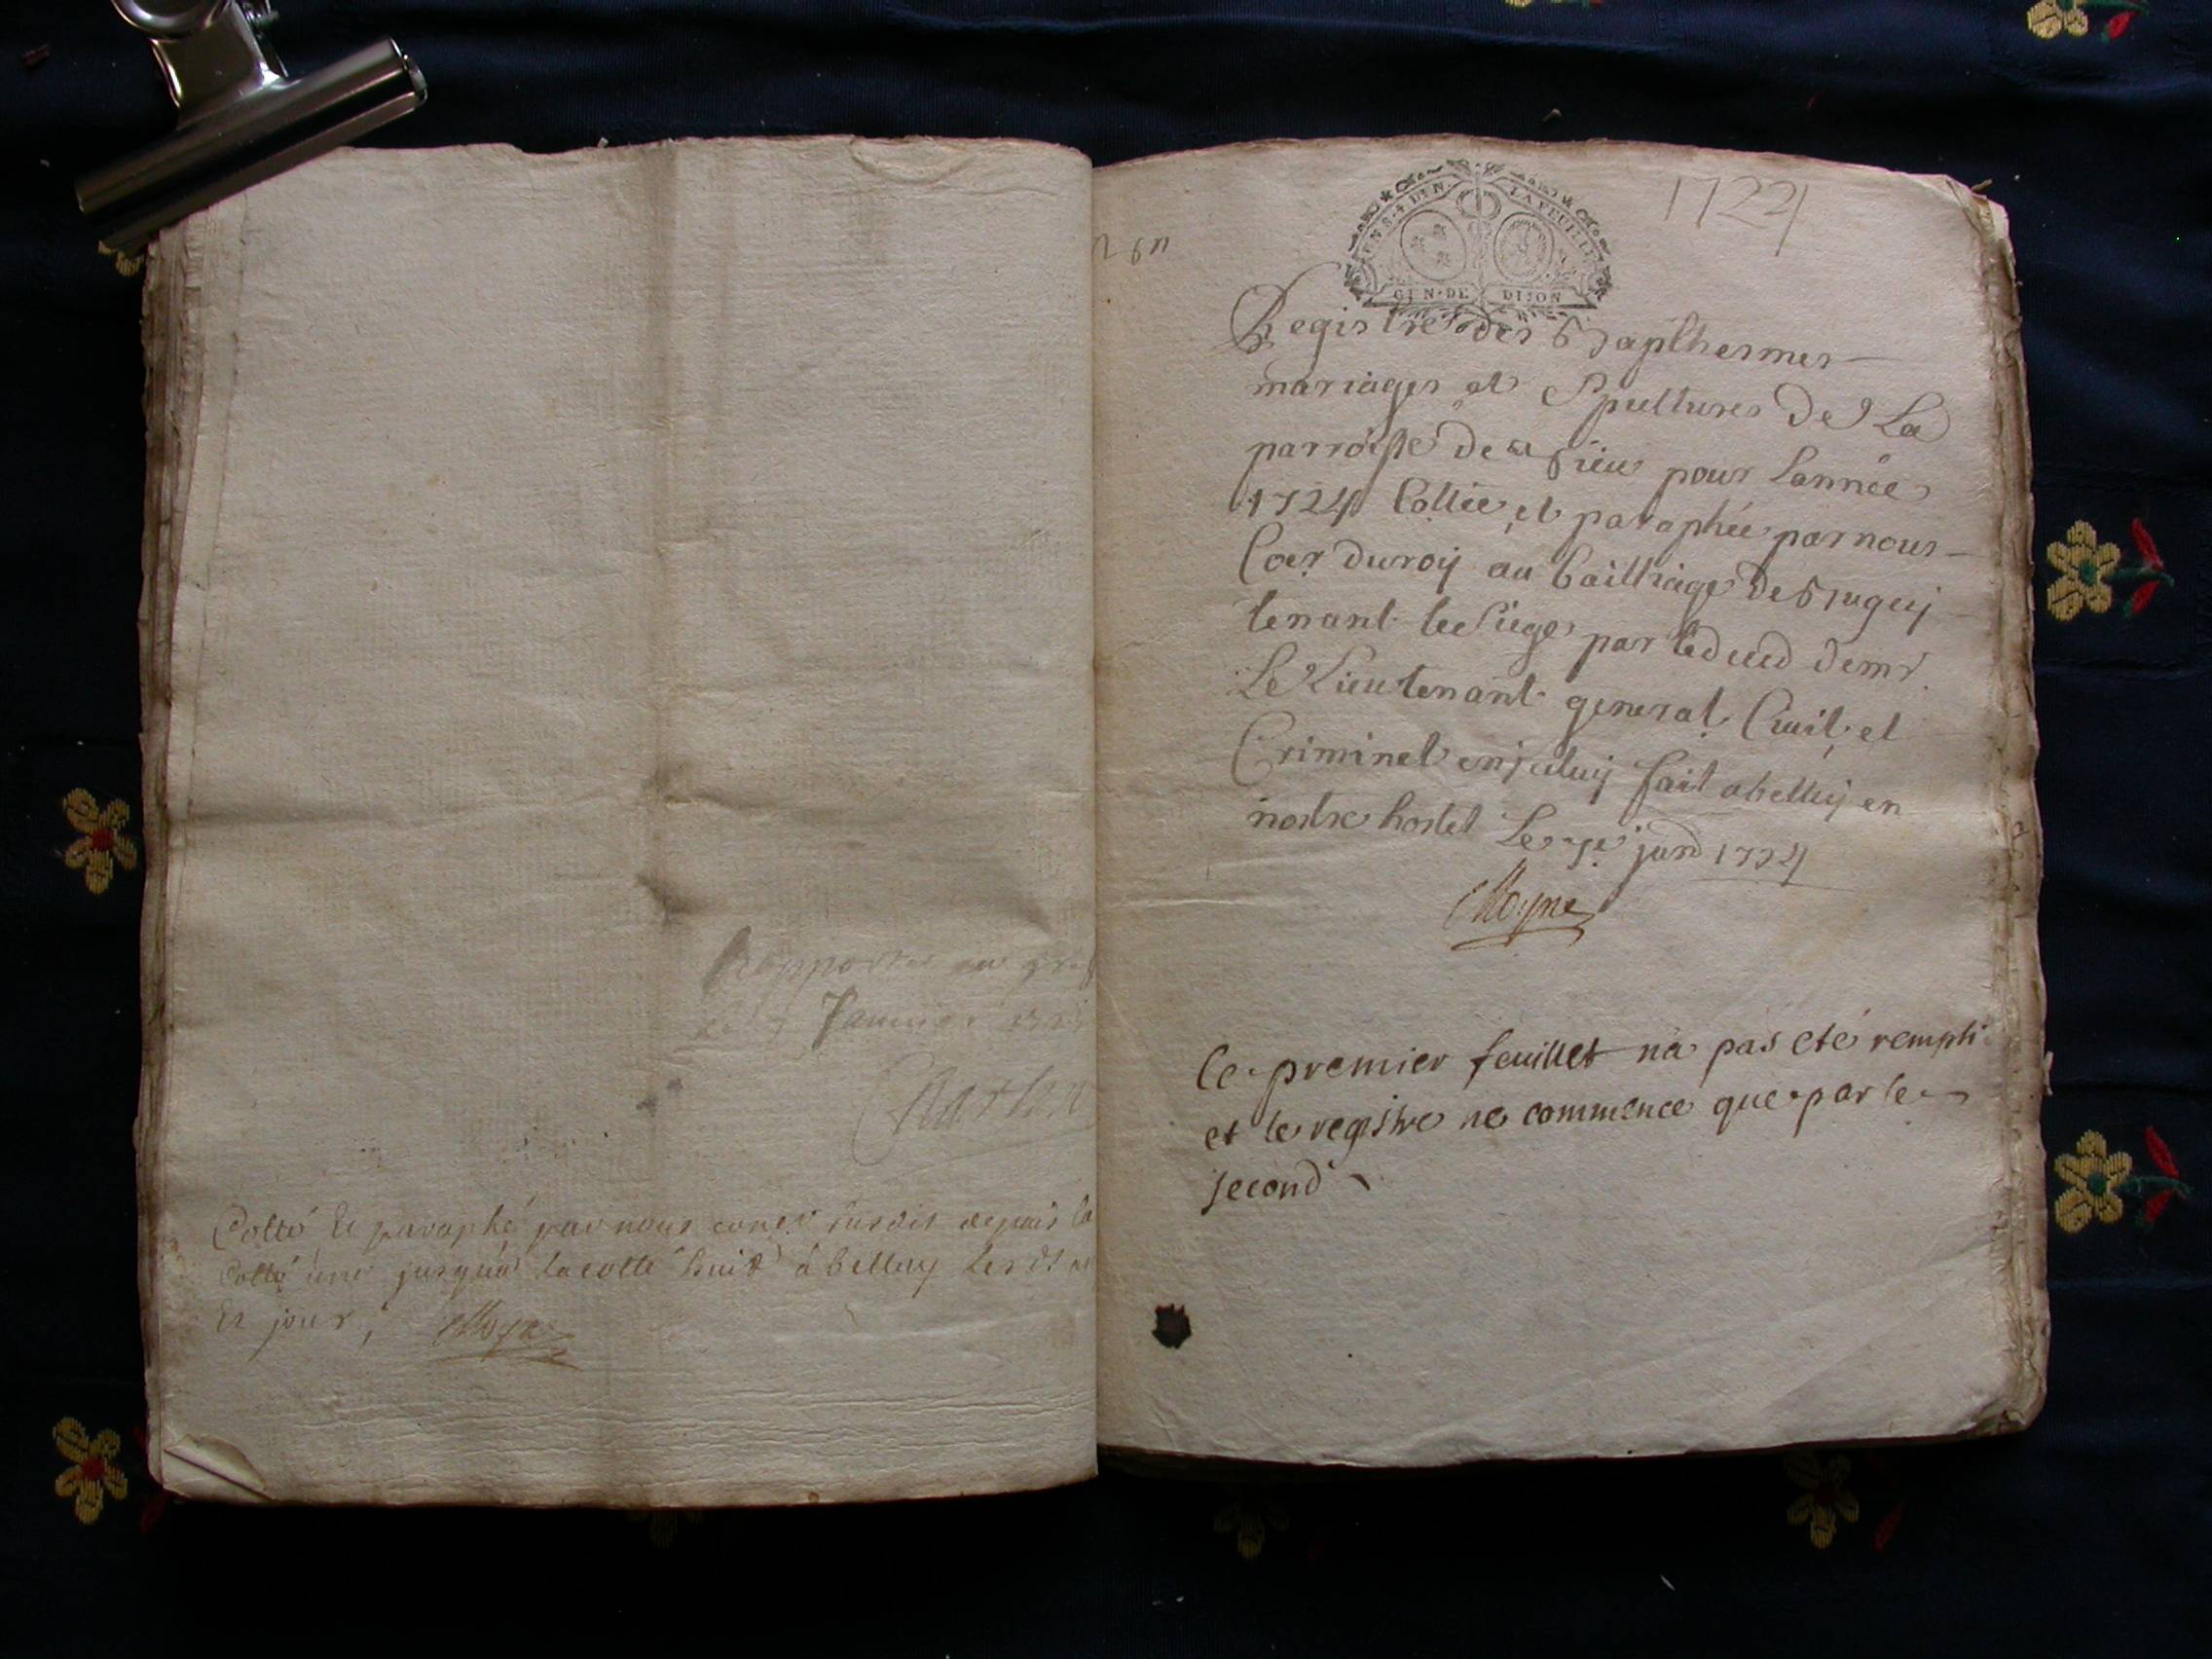 Rapporté au gref
le Janvier
Cotté et paraphé par nous coner susdit depuis la
cotte une jusqua la cotte huit a belley les dt an
et jour,
Moyne
1724
EN 8. 4 DEN. LA FEUILLE
GEN·DE DIJON
Registre des Bapthesmes
mariages et Sepultures De La
parroisse de pour Lannée
1724 Cottée et paraphée par nous
Coer du roy au bailliage De Bugey
tenant le Siege par led de mr
Le Lieutenant general Civil et
Criminel en jceluy fait a belley en
nostre hostel Le jan 1724
Moyne
Ce premier feuillet na pas eté rempli
et le registre ne commence que par le
second